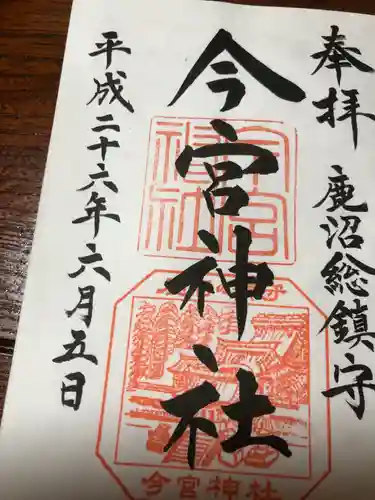 奉拝 鹿沼総鎮守
今宮神社
今宮神社
今宮神社
平成二十六年六月五日